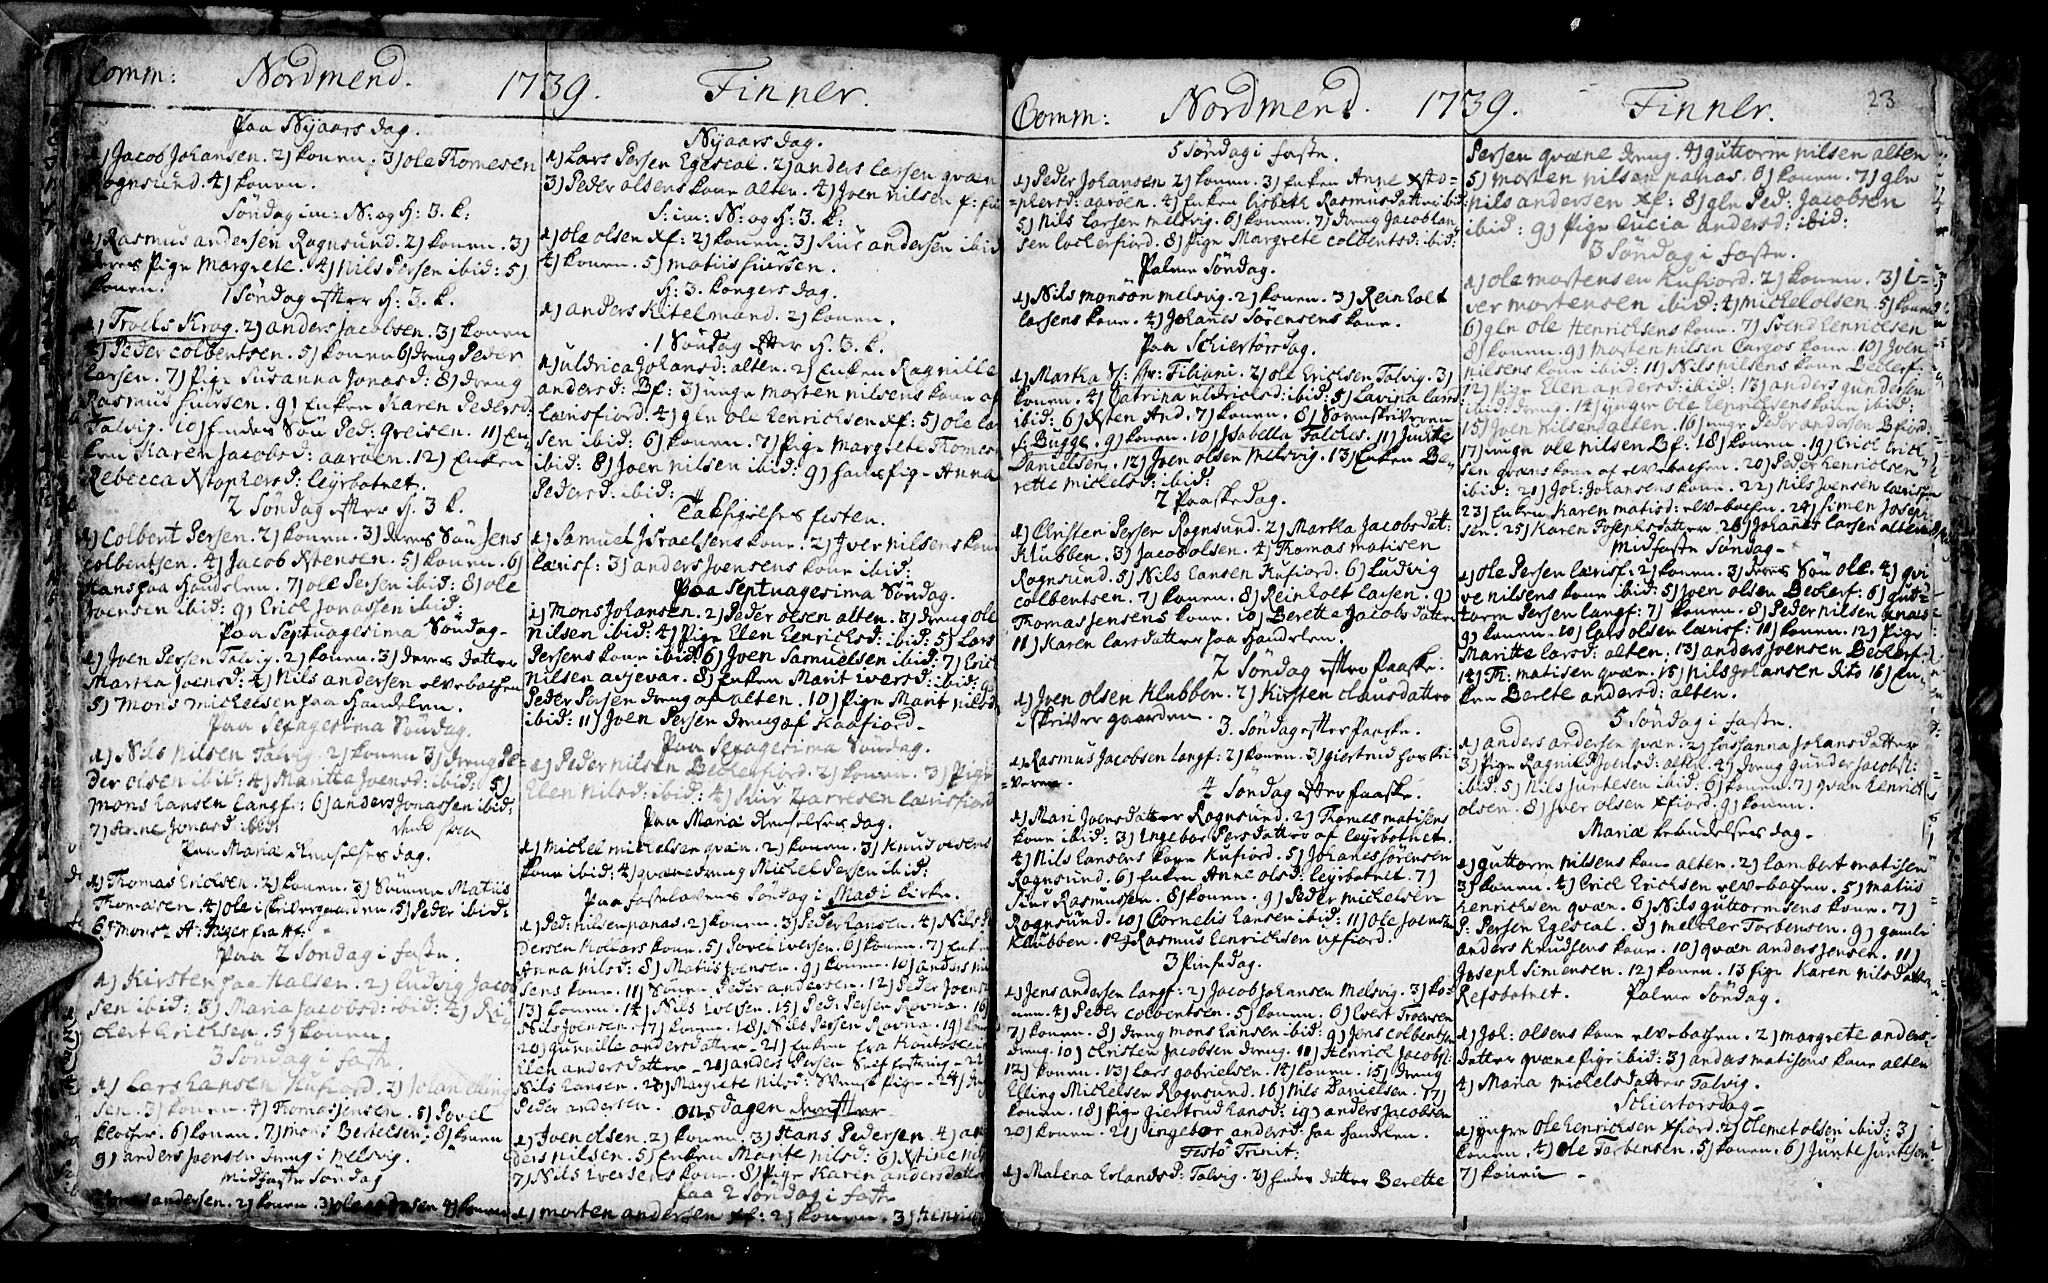 Comm: Nordmend. 1739. Finner.
Paa Nyaars dag.
1) Jacob Johansen. 2) konen. 3) ole Thomesen
Rognsund. 4) konen.
Søndag im: N: og H: 3. K:
1) Rasmus andersen Rognsund. 2) konen. 3)
deres Pige Margrete. 4) Nils Persen ibid: 5)
konen.
1 Søndag efter H. 3. K.
1) Troels Krag. 2) anders Jacobsen. 3) konen
4) Peder colbentsen. 5) konen 6) dreng Peder
larsen. 7) Pige Susanna Jonasd: 8) dreng
Rasmus Siursen. 9) Enken Karen Pedersd:
Talvig. 10) hendes Søn Ped: Greisen. 11) En-
ken Karen Jacobsd: aaroen. 12) Enken
Rebecca Xstophersd: leyrbotnet.
2 Søndag efter H. 3 K.
1) Colbent Persen. 2) konen. 3) deres Søn Jens
colbentsen. 4) Jacob Xstensen. 5) konen. 6)
Hans paa Handelen. 7) ole Persen ibid: 8) ole
Joensen ibid: 9) Erich Jonassen ibid:
Paa Septuagesima Søndag-
1) Joen Persen Talvig. 2) konen. 3) deres datter
Martha Joensd: 4) Nils andersen elvebachen
5) Mons michelsen paa Handelen.
Paa Sexagesima Søndag.
1) Nils Nilsen Talvig. 2) konen 3) dreng Pe-
der olsen ibid: 4) Maritte Joensd: ibid: 5)
Mons Hansen langf: 6) anders Jonassen ibid:
7) Anne Jonasd: ibid:
Paa Mariæ Renselses dag.
1) Thomas Erichsen. 2) konen. 3) Sønnen Matiis
Thomesen. 4) ole i skrivergaarden. 5) Peder ibid:
Paa 2 Søndag i faste.
1) Kirsten paa Halsen. 2) ludvig Jacob
sen ibid: 3) Maria Jacobsd: ibid: 4) Ri-
chert Erichsen. 5) konen.
3 Søndag i faste.
1) Lars Hansen Kufiord. 2) Johan Elling
sen. 3) konen. 4) Thomas Jensen. 5) Povel
klocher. 6) konen. 7) Mons Bertelsen: 8) konen
9) anders Joensen dreng i Melsvig.
midfaste Søndag
andersen. 2) konen. 3) ole andersen 4) konen
Nyaars dag.
1) Lars Persen Egescal. 2) anders larsen qvæn
3) Peder olsens kone alten. 4) Joen nilsen
S: im: N: og H: 3. K:
1) ole olsen Xf: 2) konen. 3) Siur andersen ibid
4) konen. 5) matiis Siursen.
H: 3. kongers dag.
1) anders Kitelmand. 2) konen.
1 Søndag efter H. 3. K.
1) uldrica Johansd: alten. 2) Enken Ragnille
andersd: Bf: 3) unge morten nilsens kone af
lærisfiord. 4) gln ole Henrichsen Xf: 5) ole lar
sen ibid: 6) konen. 7) Pige Margrete Thomes
ibid: 8) Joen nilsen ibid: 9) hans pige Anna
Pedersd. ibid:
Taksigelses festen.
1) Samuel Israelsens kone. 2) Iver nilsens kone
lærisf: 3) anders Joensens kone ibid.
Paa Septuagesima Søndag.
1) Mons Johansen. 2) Peder olsen alten. 3) dreng ole
Nilsen ibid: 4) Pige Elen Henrichsd: ibid: 5) Lars
Persens kone ibid: 6) Joen Samuelsen ibid: 7) Erich
Nilsen avjevar. 8) Enken Marit iversd: ibid: 9)
Peder Persen dreng af alten. 10) Pige Marit nilsd
ibid: 11) Joen Persen dreng af Kaafiord-
Paa Sexagesima Søndag.
1) Peder nilsen Beckerfiord. 2) konen. 3) Pige
Elen Nilsd: ibid: 4) Siur Larresen lærisfiord
Paa Mariæ Renselses dag.
1) Michel michelsen qvæn. 2) konen. 3) Knud olsens
kone ibid: 4) qvæne dreng Michel Persen ibid:
Paa fastelavens Søndag i Masi kirke.
1) Ped: nilsen panas. 2) konen. 3) Peder Hansen. 4) Nils Pe
dersen Kollars kone. 5) Povel iversen. 6) konen. 7) Enken
Anna nilsd: 8) Matiis Joensen. 9) konen. 10) anders ni
sens kone. 11) Sønen Peder andersen. 12) Peder Joens
13) konen. 14) Nils iversen. 15) Ped: Persen Rovna. 16)
Nils Joensen. 17) konen. 18) Nils Persen Rovna. 19) konen
20) Gunnille andersdatter. 21) Enken fra Kautokein
Elen andersdatter. 22) anders Persen
Nils Hansen. 23) Margrete Nilsd: Svensk pige. 24)
Peder andersen.
onsdagen derefter
1) Joen olsen. 2) konen. 3) Hans Pedersen. 4) an
ders nilsen. 5) Enken Marite nilsd: 6) Xstine nils
7) Nils iversens kone. 8) Pige Karen andersdatter
paa 2 Søndag i faste
1) morten andersen Xf: 2) konen. 3) Henrich
Comm: Nordmend. 1739. Finner. 23
5 Søndag i faste.
1) Peder Johansen 2) konen. 3) Enken Anne Xsto-
-phersd: aaroen. 4) Enken lisbeth Rasmusdatter ibid:
5) Nils larsen melsvig. 6) konen. 7) dreng Jacob lar
sen lockerfiord. 8) Pige Margrete colbentsd: ibid:
Palme Søndag.
1) Nils monsøn melsvig. 2) konen. 3) Reinholt
larsens kone. 4) Johanes Sørensens kone.
Paa Schiertorsdag.
1) Martha S: Hr: Filiani. 2) ole Erichsen Talvig. 3)
konen. 4) Catrina uldrichsd: ibid: 5) Lavina larsd:
ibid: 6) Xsten And. 7) konen. 8) Sorenskriveren
S: Bugge. 9) konen. 10) Isabella Falches. 11) Junte
Danielsen. 12) Joen olsen melsvig. 13) Enken Be-
rette michelsd: ibid:
2 Paaskedag.
1) Christen Persen Rognsund. 2) Martha Jacobsdatt:
Klubben. 3) Jacob olsen. 4) Thomas matisen
Rognsund. 5) Nils Hansen Kufiord: 6) ludvig
colbentsen. 7) konen. 8) Reinholt larsen. 9)
Thomas Jensens kone. 10) Berette Jacobsdatter
11) Karen larsdatter paa Handelen.
2 Søndag efter Paaske.
1) Joen olsen Klubben. 2) Kirsten clausdatter
i skrivergaarden.
3. Søndag efter Paaske.
1) Rasmus Jacobsen langf: 2) konen. 3) giertrud hos skri-
-veren.
4 Søndag efter Paaske.
1) Mari Joensdatter Rognsund. 2) Thomes matisens
kone ibid: 3) Ingebor Persdatter af leyrbotnet.
4) Nils Hansens kone Kufiord. 5) Johanes Sørensen
Rognsund. 6) Enken Anne olsd: leyrbotnet. 7)
Siur Rasmussen. 8) konen. 9) Peder michelsen
Rognsund. 10) Cornelis Hansen ibid: 11) ole Joensen
Klubben. 12) Rasmus Henrichsen uffiord.
3 Pinsedag.
1) Jens andersen langf: 2) Jacob Johansen Melsvig. 3) ko-
nen. 4) Peder colbentsen. 5) konen. 6) Evert Troensen
7) konen. 8) dreng mons Hansen ibid: 9) Jens colbentsen
dreng. 10) christen Jacobsen dreng. 11) Henrich Jacobs:
12) konen. 13) Lars gabrielsen. 14) konen. 15) dreng
Elling Michelsen Rognsund. 16) Nils Danielsen. 17)
konen. 18) Pige giertrud Hansd: 19) anders Jacobsen
20) konen. 21) ingebor andersd: paa Handelen.
Festo Trinit:
1) Malena Erlandsd: Talvig. 2) hendes datter Berette
Persen qvæne dreng. 4) guttorm nilsen alten
5) Morten nilsen panas. 6) konen. 7) gln
nils andersen Xf: 8) gln Ped: Jacobsen
ibid: 9) Pige lucia andersd: ibid:
3 Søndag i faste.
1) ole mortensen Kufiord. 2) konen. 3) i-
ver mortensen ibid: 4) michel olsen. 5) konen
6) gln ole Henrichsens kone. 7) Svend Henrichsen
8) konen. 9) Morten nilsen Cargos kone. 10) Joen
nilsens kone ibid: 11) Nils nilsens kone Beckerf.
12) Pige Elen andersd: ibid: 13) anders gundersen
ibid: dreng. 14) ynger ole Henrichsens kone ibid:
15) Joen nilsen alten. 16) unge Peder andersen Bfiord:
17) unge ole nilsen Bf: 18) konen. 19) Erich Erich
sen qvæns kone af elvebachen. 20) Peder Henrichsen
ibid: 21) Joh: Johansens kone. 22) Nils Joensen lærisf:
23) Enken Karen matisd: elvebachen. 24) Simen Josep
sen. 25) Karen Josephsdatter 26) Johanes larsen alten
Midfaste Søndag-
1) ole Persen lærisf: 2) konen. 3) deres Søn ole. 4) gvi
ve nilsens kone ibid: 5) Joen olsen Beckerf: 6) gut-
torm Persen langf: 7) konen. 8) Peder nilsen panas
9) konen. 10) Lars olsen lærisf: 11) konen. 12) Pige
Maritte larsd: alten. 13) anders Joensen Beckerf:
14) Th: matisen qvæn. 15) Nils Johansen Kito 16) En-
ken Berete andersd: alten.
5 Søndag i faste.
1) anders andersen qvæn. 2) Susanna Johansdatter
3) Pige Ragnild Joensd: alten. 4) dreng gunder Jacobs:
ibid: 5) Nils Juntesen ibid: 6) konen. 7) qvæn Henrich
olsen. 8) Iver olsen Xfiord: 9) konen.
Mariæ bebudelses dag-
1) guttorm Nilsens kone alten. 2) lambert matisen
3) konen. 4) Erich Erichsen elvebachen. 5) matiis
Henrichsen qvæn. 6) Nils guttormsens kone. 7)
P: Persen Egescal. 8) melcher Torbensen. 9) gamle
anders Knudsens kone. 10) qvæn anders Jensen. 11)
Joseph Simensen. 12) konen. 13 Pige Karen nilsdatter
Refsbotnet. Palme Søndag.
1) Joh: olsens kone elvebachen. 2) margrete anders
datter qvæne pige ibid: 3) andas matisens kone alten
4) Maria michelsdatter Talvig.
Schiertorsdag-
1) yngre ole Henrichsen Xfiord. 2) Clemet olsen ibid: 3)
konen. 4) ole Torbensen. 5) konen. 6) Junte Juntesen
7) konen -